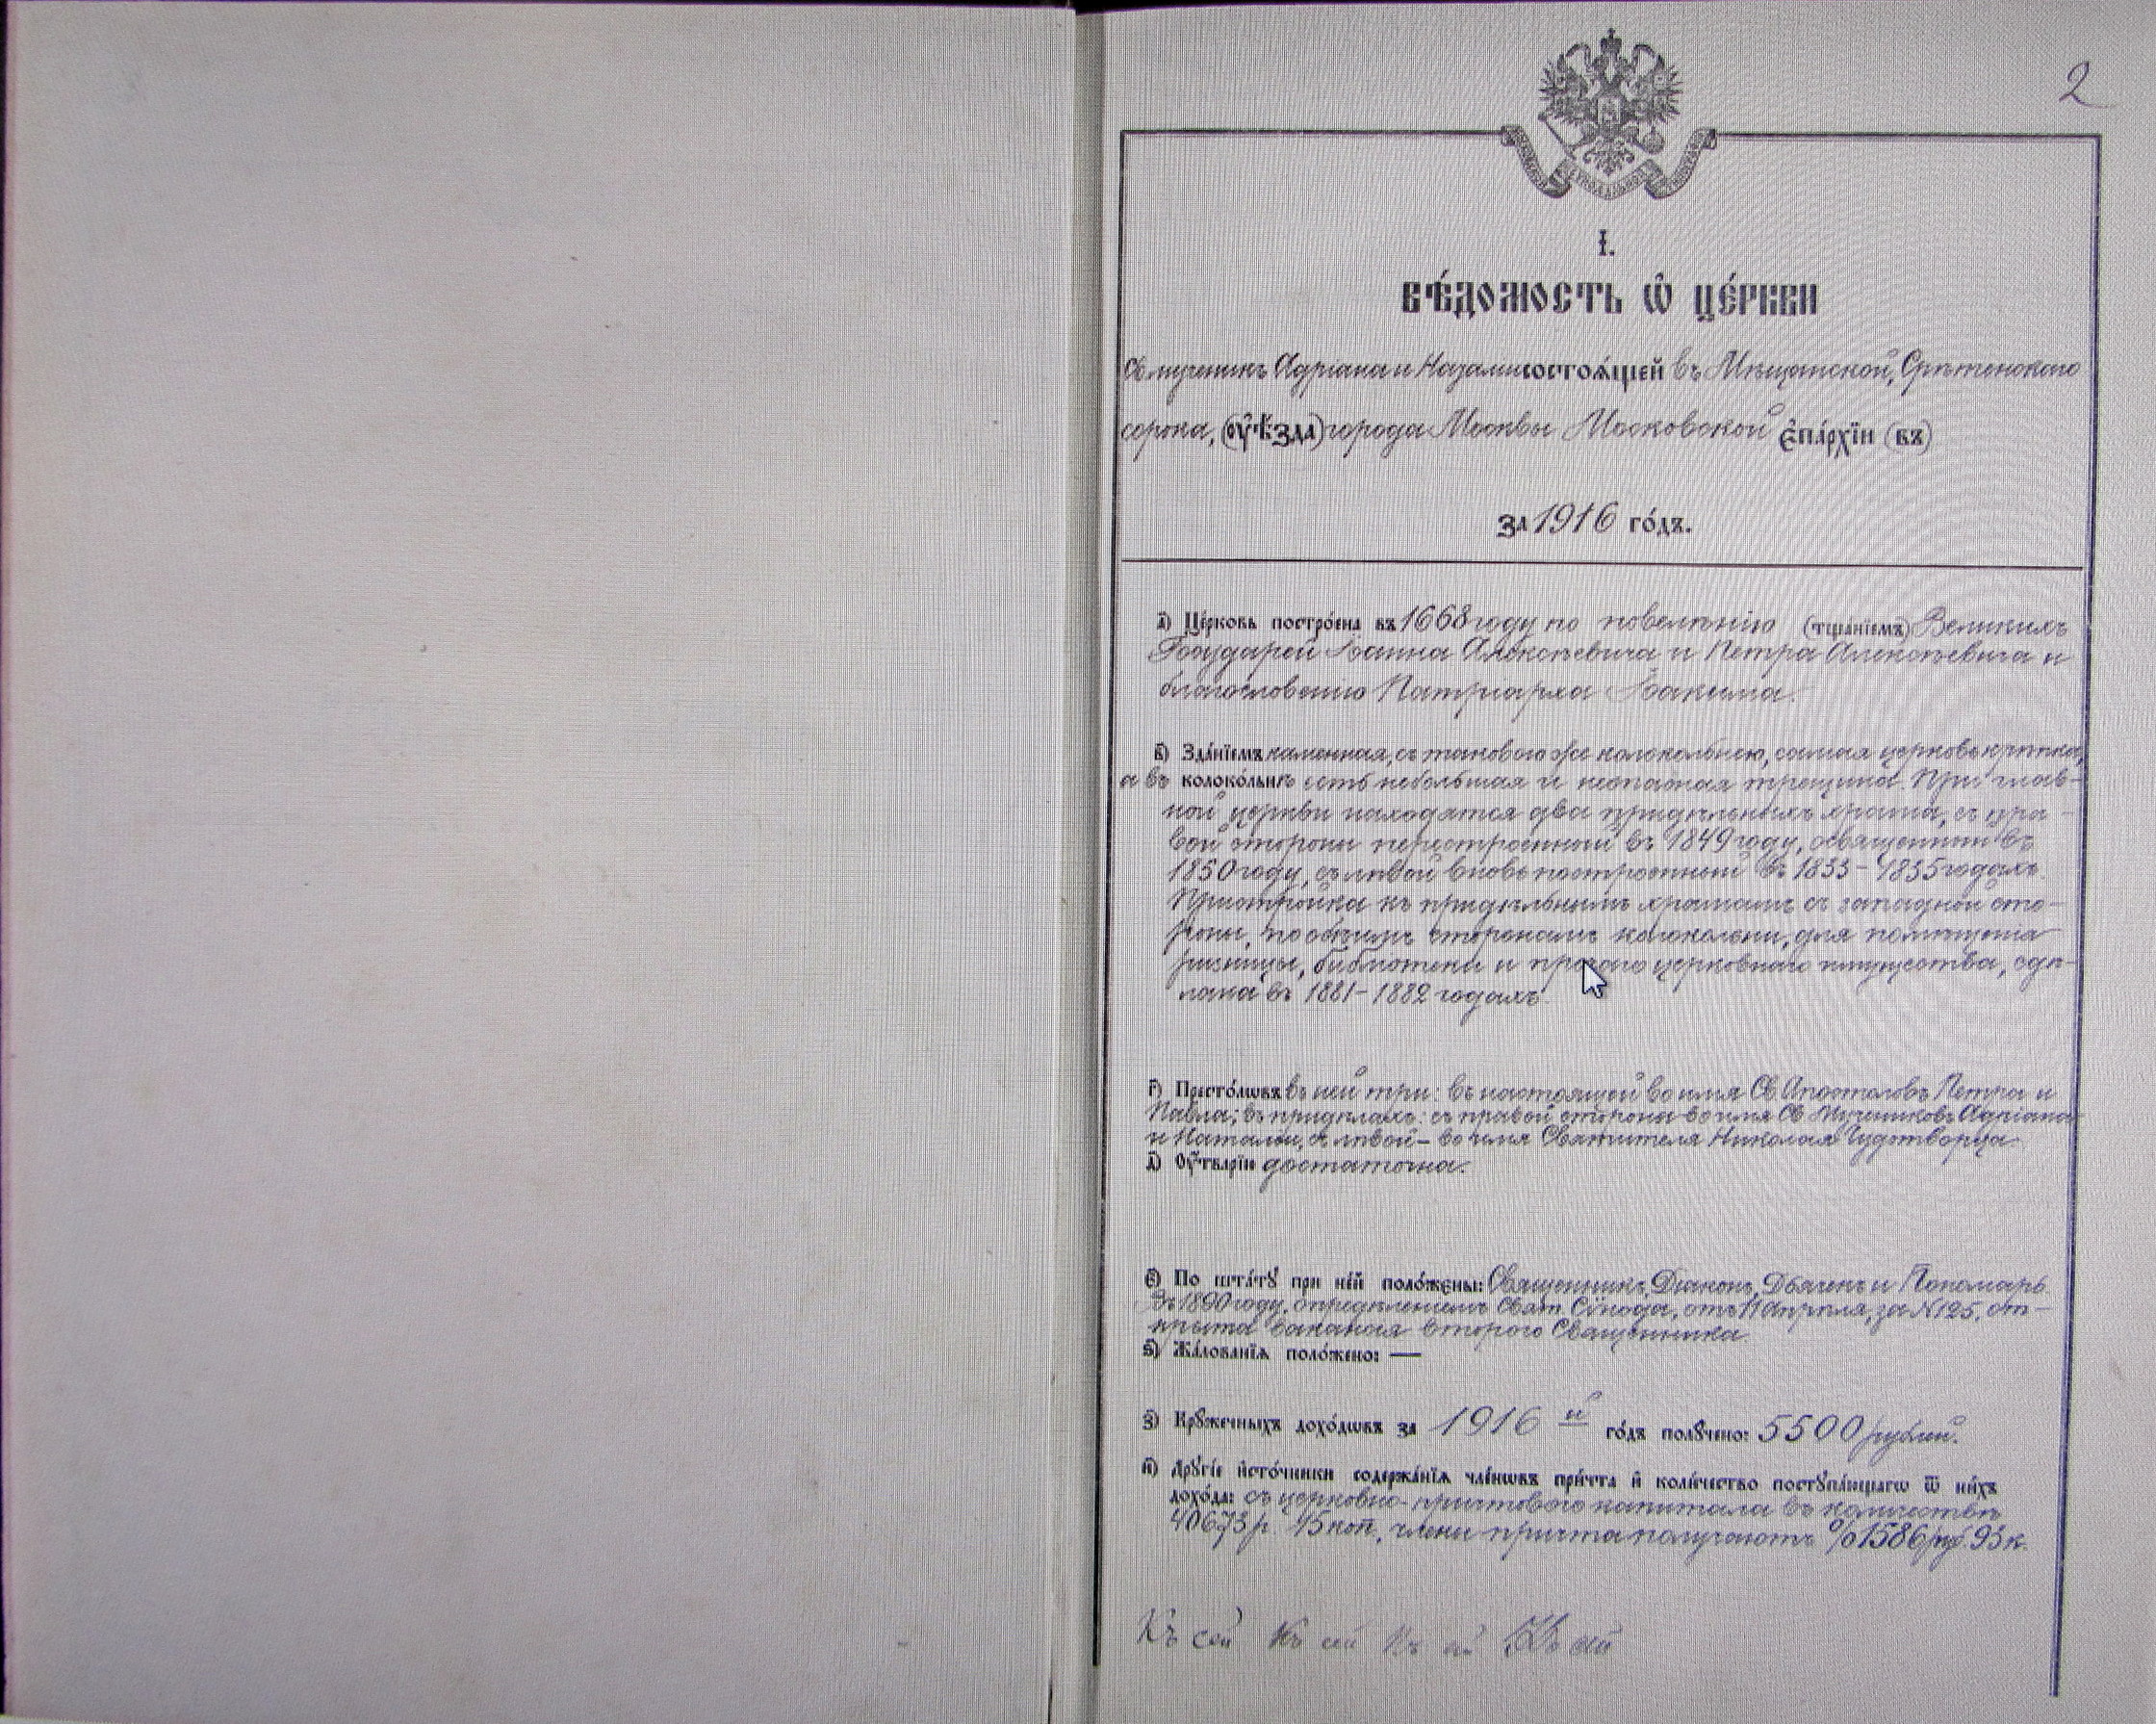 2
I.
ВѢ́ДОМОСТЬ Ѡ҆ ЦЕ́РКВИ
Св. мученикъ Адріана и Наталіи состоѧ́щей въ Мѣщанской, Срѣтенскаго
сорока, (ᲂу҆ѣ́зда) города Москвы Московской є҆па́рхїи (въ)
за 1916 го́дъ.
а҃) Це́рковь постро́ена въ 1668 году по повелѣнію (тща́нїемъ) Великихъ
Государей Іоанна Алексѣевича и Петра Алексѣевича и
благословенію Патріарха Іоакима.
в҃) Зда́нїемъ каменная, съ таковою же колокольнею, самая церковь крѣпка,
а въ колоко́льнѣ есть небольшая и неопасная трещина. При глав-
ной церкви находятся два придѣльныхъ храма, съ пра-
вой стороны перестроенный въ 1849 году, освященный въ
1850 году, съ лѣвой вновь построенный въ 1833-1835 годахъ.
Пристройка къ придѣльнымъ храмамъ съ западной сто-
роны, по обѣимъ сторонамъ колокольни, для помѣщенія
ризницы, библіотеки и прочаго церковнаго имущества, сдѣ-
лана въ 1881-1882 годахъ.
г҃) Престо́лѡвъ въ ней три: въ настоящей во имя Св. Апостоловъ Петра и
Павла; въ придѣлахъ: съ правой стороны во имя Св. Мучениковъ Адріана
и Наталіи, съ лѣвой - во имя Святителя Николая Чудотворца.
д҃) Оу҆́тварїи достаточна.
є҃) По шта́тꙋ при не́й поло́жены: Священникъ, Діаконъ, Дьячекъ и Пономарь.
Въ 1890 году, опредѣленіемъ Свят. Сѵнода, отъ 11 Апрѣля, за №125, от-
крыта вакансія второго Священника.
ѕ҃) Жа́лованїѧ поло́жено: —
з҃) Крꙋ́жечныхъ дохо́дѡвъ за 1916 й го́дъ полꙋ́чено: 5500 рублей.
и҃) Дрꙋгі́е и҆сто́чники содержа́нїѧ чле́нѡвъ при́чта и҆ коли́чество постꙋпа́ющагѡ ѿ ни́хъ
дохо́да: съ церковно-причтового капитала въ количествѣ
40673 р. 45 коп. члены причта получаютъ % 1586 руб. 93 к.
Къ сей Къ сей Къ ей Къ сей